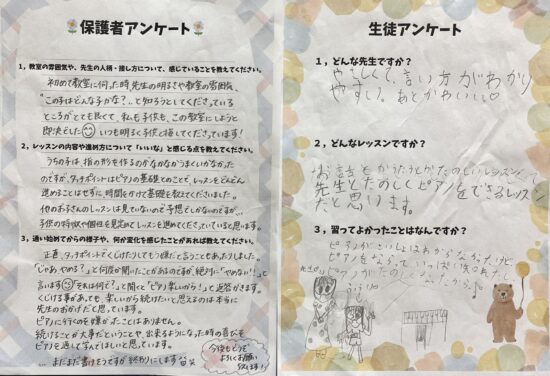 保護者アンケート
1，教室の雰囲気や、先生の人柄・接し方について、感じていることを教えてください。
初めて教室に伺った時、先生の明るさや教室の雰囲気、
"この子はどんな子かな？"と知ろうとしてくださっている
ところがとても良くて、私も子供も、この教室にしようと
即決でした いつも明るく子供と接してくださっています！
2，レッスンの内容や進め方について「いいな」と感じる点を教えてください。
うちの子は、指の形を作るのがなかなかうまくいかなかった
のですが、タッチポイントはピアノの基礎とのことで、レッスンをどんどん
進めることはせずに、時間をかけて基礎を教えてくださいました。
他のお子さんのレッスンは見ていないので予想でしかないのですが…
子供の特徴や個性を見定めてレッスンを進めてくださっていると思います。
3，通い始めてからの様子や、何か変化を感じたことがあれば教えてください。
正直、タッチポイントでくじけたりしてもう嫌だと言うこともありました。
「じゃあやめる？」と何度か聞いたことがあるのですが、絶対に「やめない！」と
言います それは何で？」と聞くと「ピアノ楽しいから！」と返答がきます。
くじける事があっても、楽しいから続けたいと思えるのは本当に
先生のおかげだと思っています。
ピアノに行くのを嫌がったことはありません。
続けることが大事だということや、出来るようになった時の喜びを
ピアノを通して学んでほしいと思っています。
…まだまだ書けそうですが終わりにします
今後もどうぞ
よろしくお願い
致します！
生徒アンケート
1，どんな先生ですか？
やさしくて、言い方がわかり
やすい。あとかわいい♡
2，どんなレッスンですか？
お話をしたりうたったりたのしいレッスン
先生とたのしくピアノをできるレッスン
だと思います。
3，習ってよかったことはなんですか？
ピアノが
ピアノをならって、いっぱい
ピアノがたのし
先生